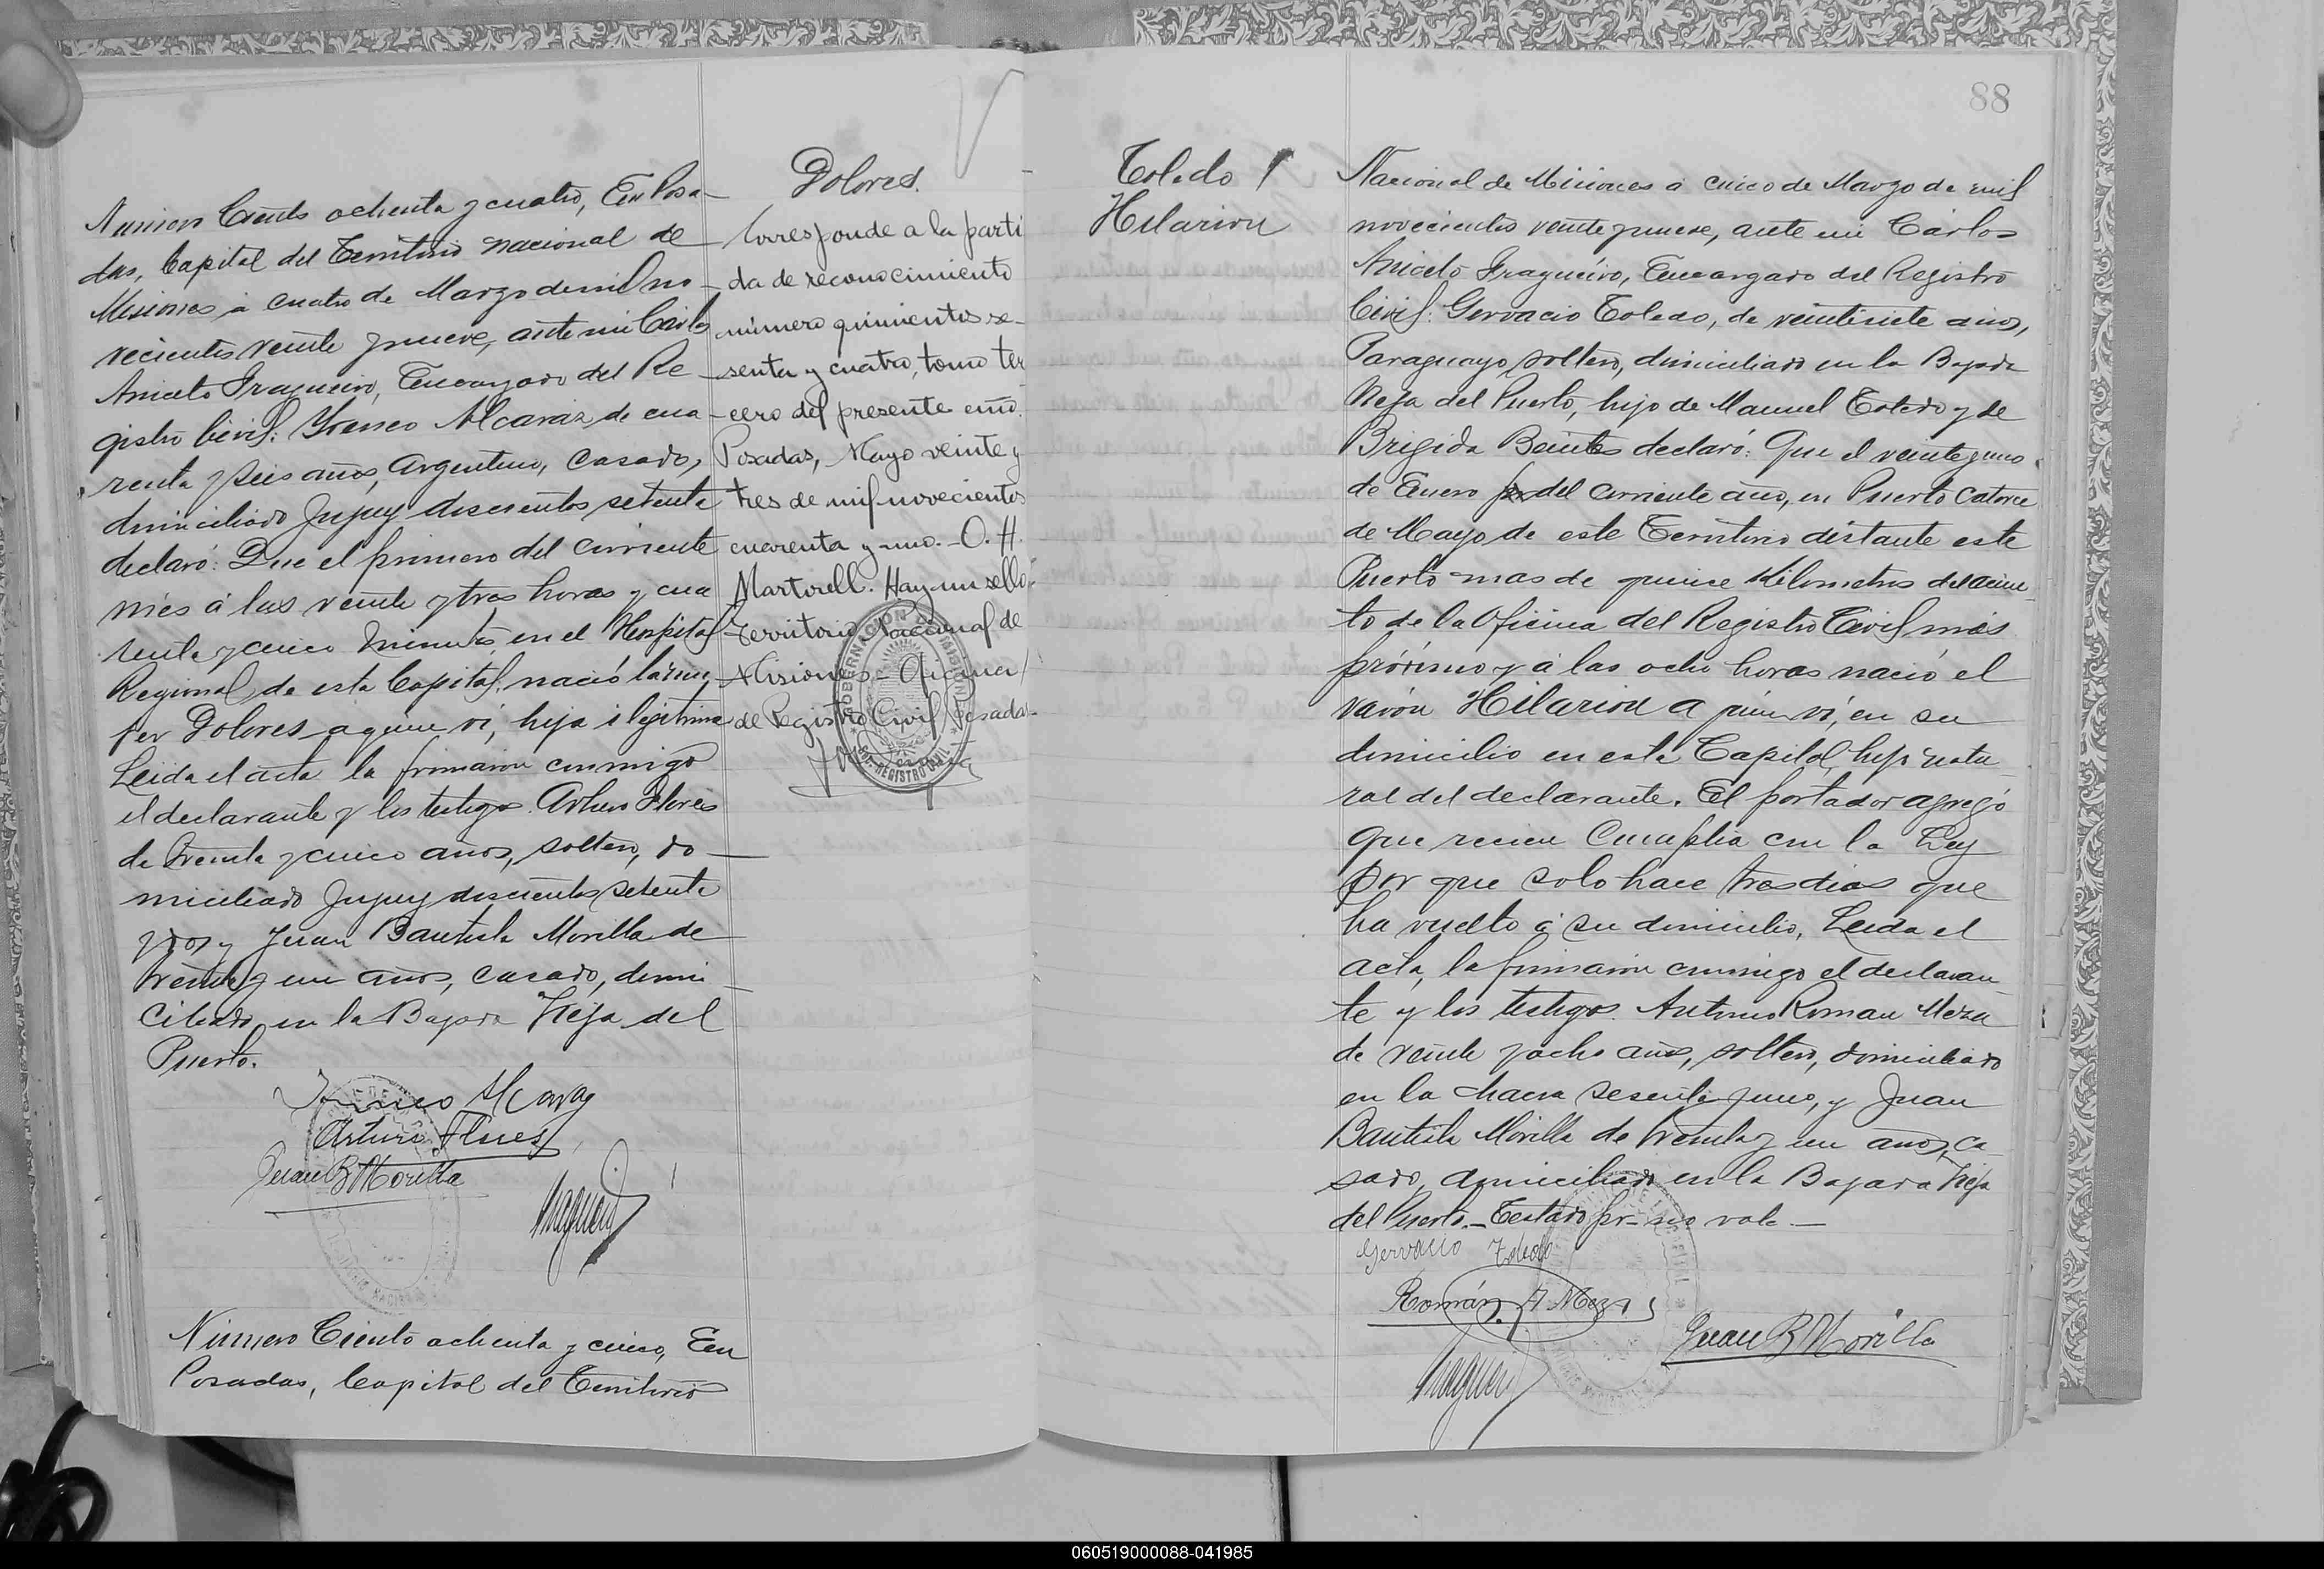 Número Ciento ochenta y cuatro, En Posa-
das, Capital del Territorio nacional de
Misiones á cuatro de Marzo de mil no-
vecientos veinte y nueve, ante mi Carlos
Aniceto Fragueiro, Encargado del Re-
gistro Civil: Alcaraz de cua-
renta y seis años, Argentino, casado,
domiciliado Jujuy doscientos setenta
declaró: Que el primero del corriente
mes á las veinte y tres horas y cua
renta y cinco minutos, en el Hospital
Regional de esta Capital, nació la mu-
jer Dolores a quien ví, hija ilegítima
Leida el acta la firmaron conmigo
el declarante y los testigos. Arturo Flores
de treinta y cinco años, soltero, do-
miciliado Jujuy doscientos setenta
y dos y Juan Bautista Morilla de
treinta y un años, casado, domi-
ciliado en la Bajada Vieja del
Puerto.
Alcaraz
Arturo Flores
Juan B Morilla
Número Ciento ochenta y cinco, En
Posadas, Capital del Territorio
Dolores.
Corresponde a la parti
da de reconocimiento
número quinientos se-
senta y cuatro, tomo ter
cero del presente año.
Posadas, Mayo veinte y
tres de mil novecientos
cuarenta y uno.- O. H.
Martorell. Hay un sello:
Territorio Nacional de
Misiones - Oficina
de Registro Civil Posadas-
GOBERNACION DE MISIONES
REGISTRO CIVIL
88
Toledo
Hilarion
Nacional de Misiones á cinco de Marzo de mil
novecientos veinte y nueve, ante mi Cárlos
Aniceto Fragueiro, Encargado del Registro
Civil: Gervacio Toledo, de veintisiete años,
Paraguayo, soltero, domiciliado en la Bajada
Vieja del Puerto, hijo de Manuel Toledo y de
Brigida Benites declaró: Que el veinte y uno
de Enero pr del corriente año, en Puerto Catorce
de Mayo de este Territorio distante este
Puerto mas de quince Kilometros del acien-
to de la Oficina del Registro Civil más
próximo y á las ocho horas nació el
varón Hilarion a quien ví, en su
domicilio en esta Capital, hijo natu-
ral del declarante. El portador agregó
que recien Cumplia con la Ley
por que solo hace tres dias que
ha vuelto á su domicilio. Leida el
acta, la firmaron conmigo el declaran
te y los testigos. Antonio Roman Meza
de veinte y ocho años, soltero, domiciliado
en la chacra sesenta y uno, y Juan
Bautista Morilla de treinta y un años, ca-
sado, domiciliado en la Bajada Vieja
del Puerto.- Testado pr- no vale-
Gervacio Toledo
Román A. Meza
Juan B Morilla
060519000088-041985